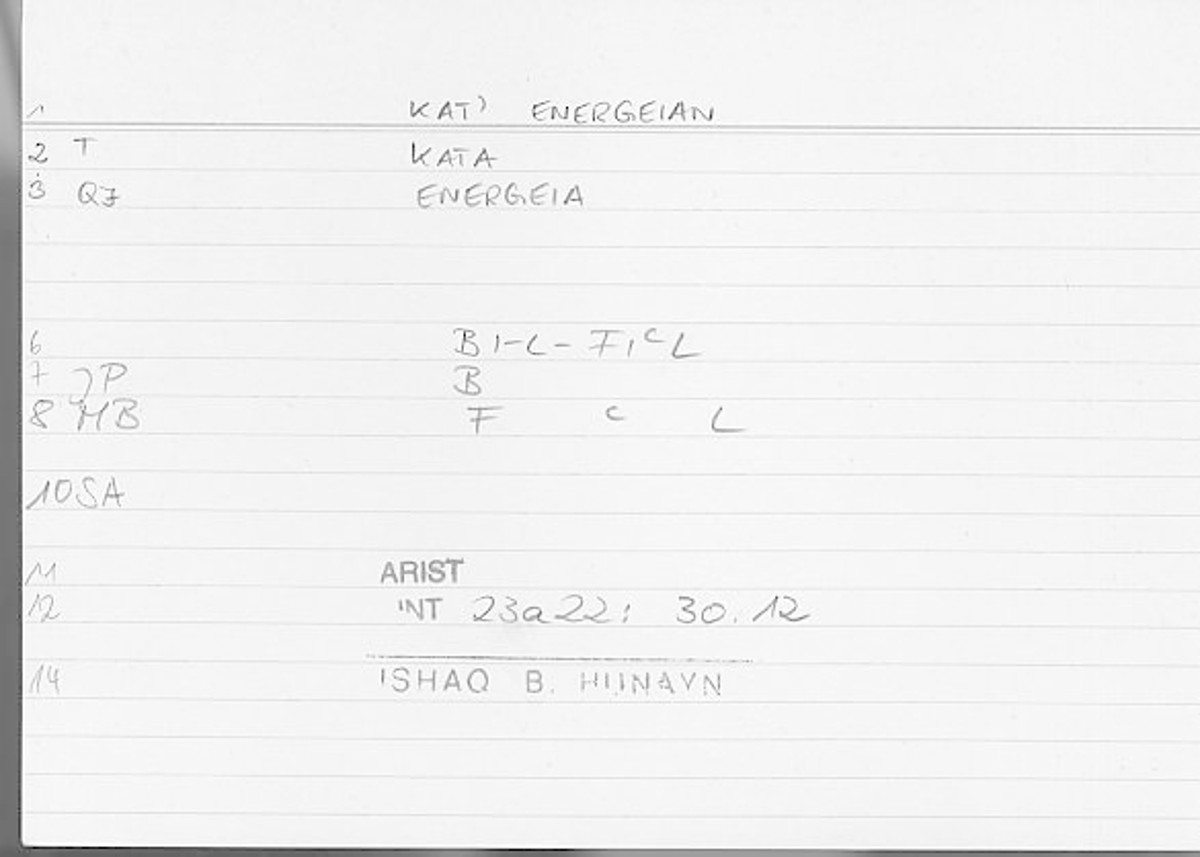 1 KAT' ENERGEIAN
2 T KATA
3 Q7 ENERGEIA
6 BI-L-FIᶜL
7 JP B
8 MB F ᶜ L
10 SA
11 ARIST
12 INT 23a22; 30.12
14 ISHAQ B. HUNAYN